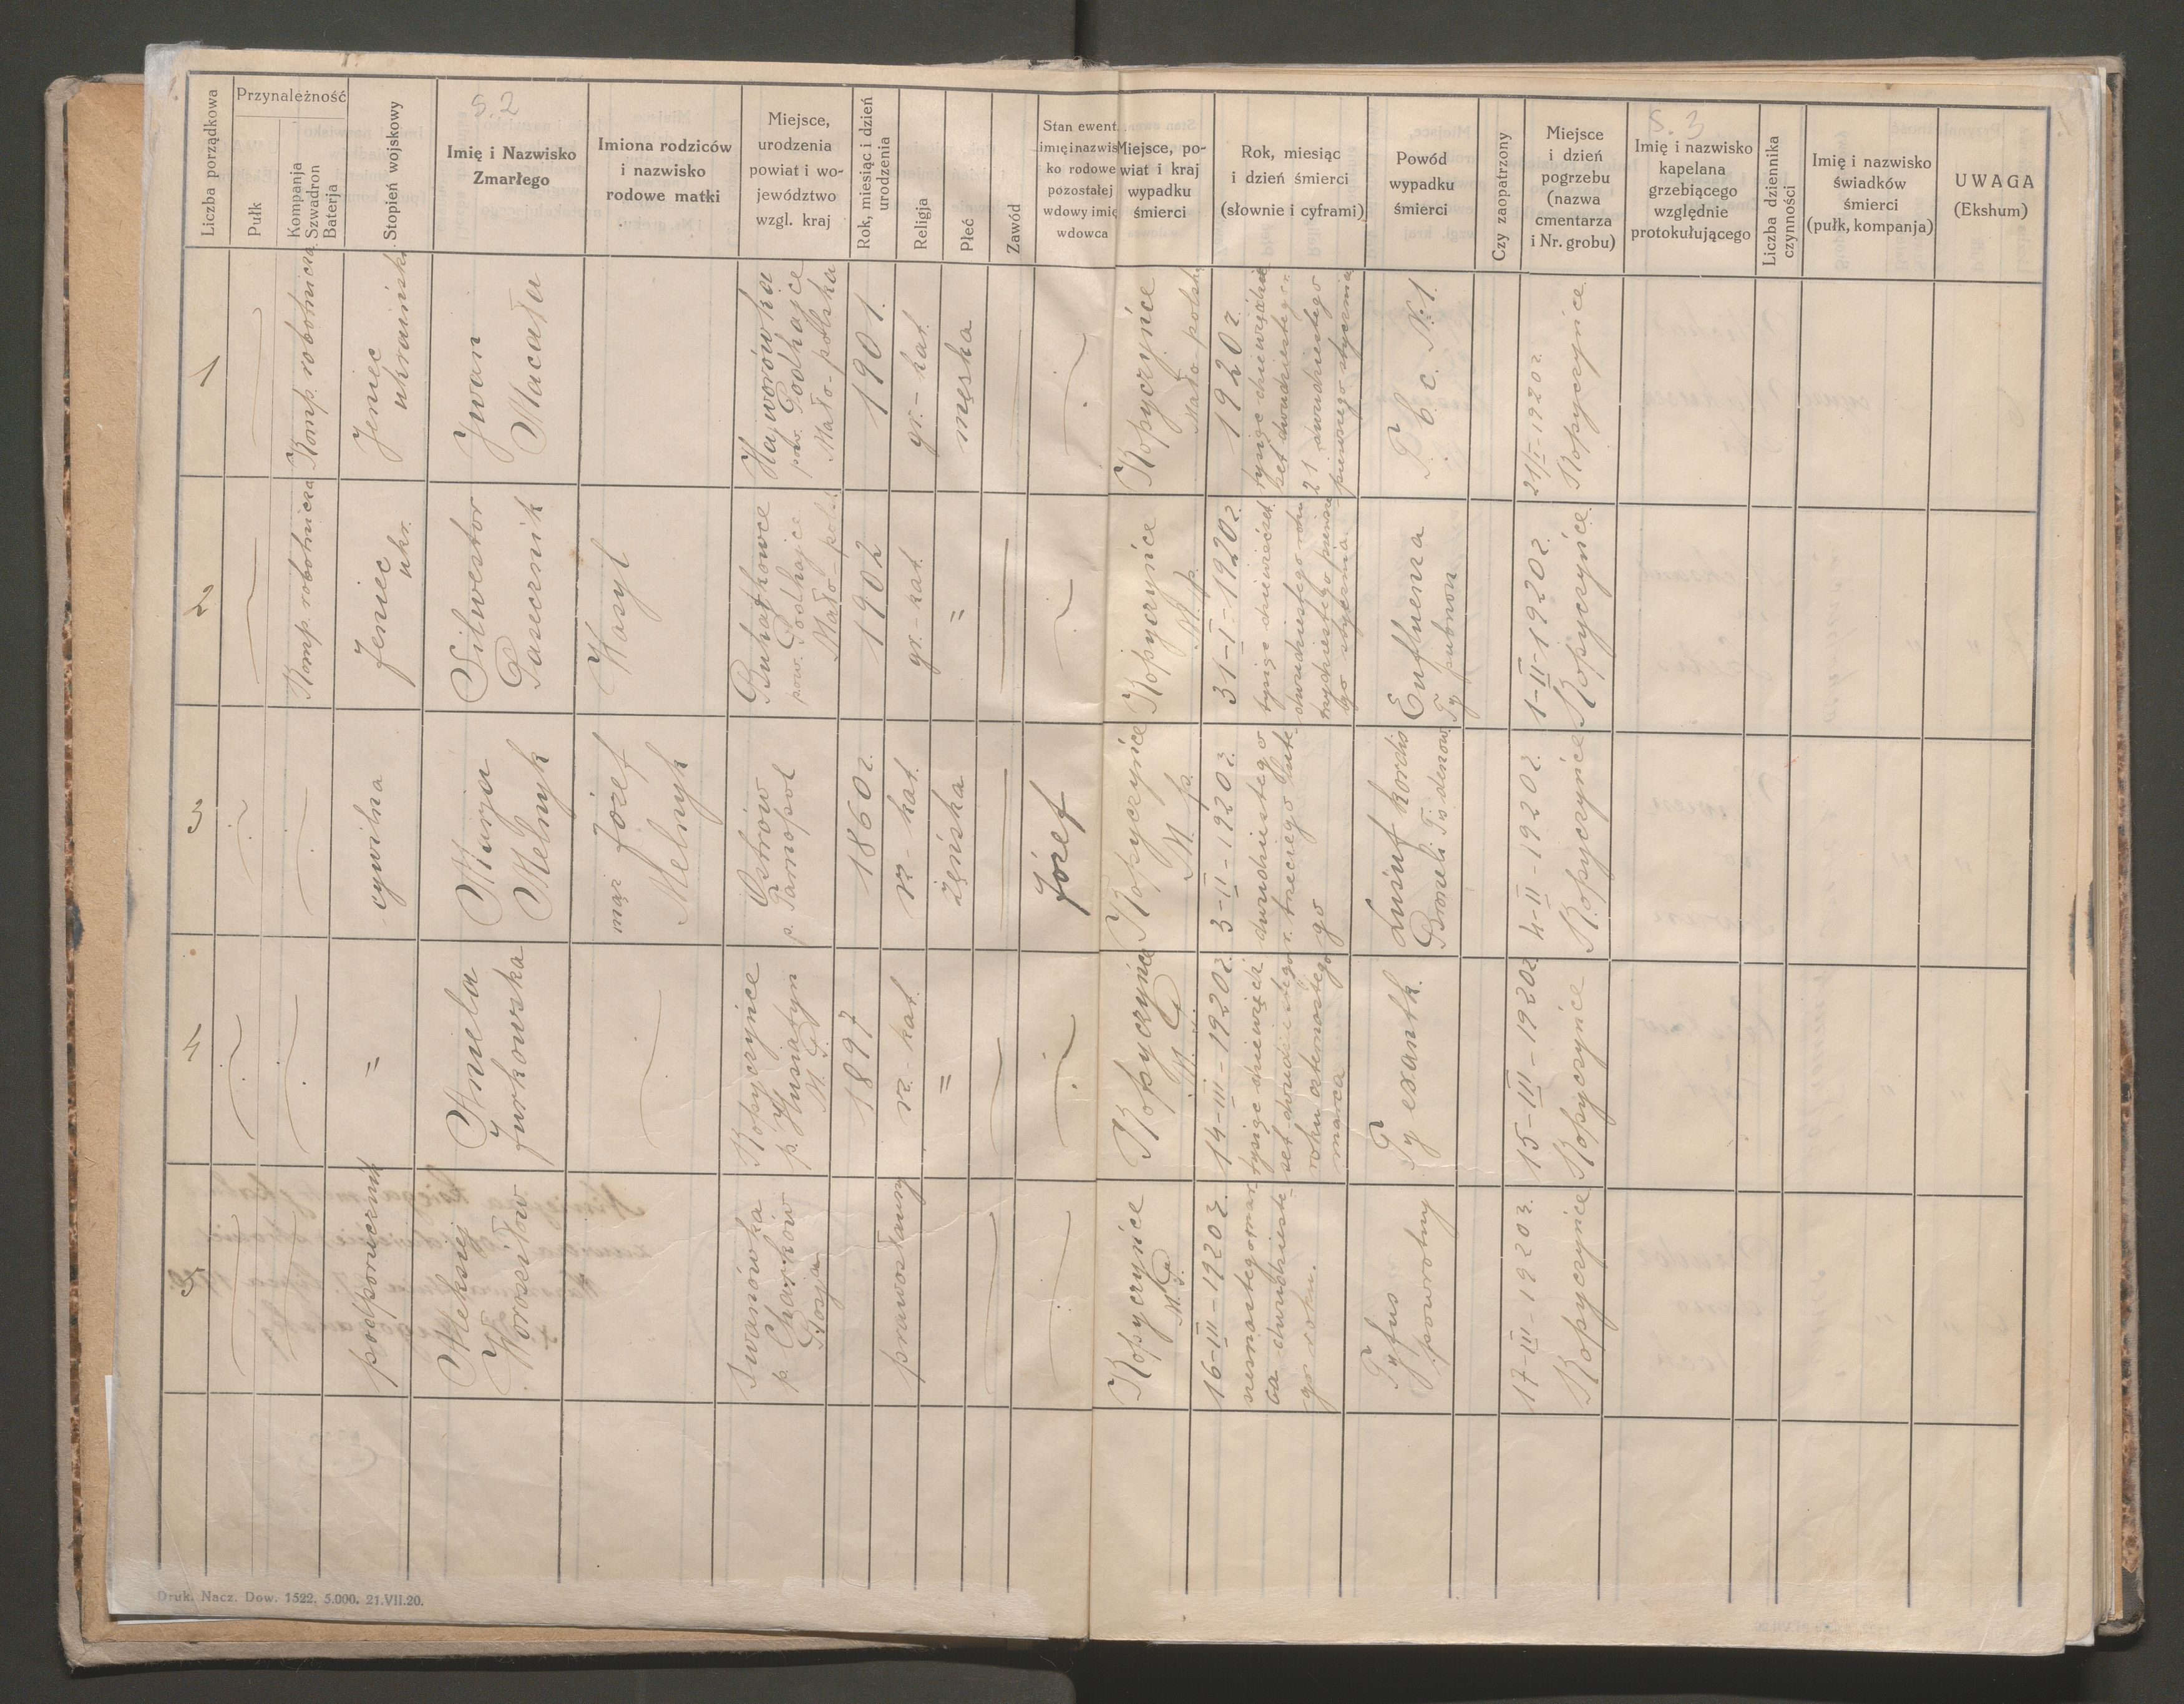 s. 2
s. 3
Liczba porządkowa
Przynależność
Pułk
Kompanja
Szwadron
Baterja
Stopień wojskowy
Imię i Nazwisko
Zmarłego
Imiona rodziców
i nazwisko
rodowe matki
Miejsce,
urodzenia
powiat i wo-
jewództwo
wzgl. kraj
Rok, miesiąc i dzień
urodzenia
Religja
Płeć
Zawód
Stan ewent.
imię i nazwis
ko rodowe
pozostałej
wdowy imię
wdowca
Miejsce, po-
wiat i kraj
wypadku
śmierci
Rok, miesiąc
i dzień śmierci
(słownie i cyframi)
Powód
wypadku
śmierci
Czy zaopatrzony
Miejsce
i dzień
pogrzebu
(nazwa
cmentarza
i Nr. grobu)
Imię i nazwisko
kapelana
grzebiącego
względnie
protokułującego
Liczba dziennika
czynności
Imię i nazwisko
świadków
śmierci
(pułk, kompanja)
UWAGA
(Ekshum)
1
Komp. robotnicza
Jeniec
ukraiński
Iwan
Macała
Hajworówka
pow. Podhajce
Mało-polska
1901.
gr.-kat.
męska
Kopyczyńce
Mało-polska
1920 r.
tysiąc dziewięćdzie
set dwudziestego
21 dwudziestego
pierwszego stycznia
21/I-1920 r.
Kopyczyńce
2
Komp. robotnicza
Jeniec
ukr.
Silwestor
Pasecznik
Wasyl
pow. Podhajce
Mało-pol.
1902
gr.-kat.
=
Kopyczyńce
M. p.
31-I-1920 r.
tysiąc dziewięćset
dwudziestego roku
trzydziestego pierwsze
go stycznia
1-II-1920 r.
Kopyczyńce
3
cywilna
Marja
Melnyk
mąż Józef
Melnyk
Ostrów
p. Tarnopol
1860 r.
rz-kat.
żeńska
Józef
Kopyczyńce
M. p.
3-II-1920 r.
dwudziestego
r. trzeciego lute
go
4-II-1920 r.
Kopyczyńce
4
=
Aniela
Jurkowska
Kopyczyńce
p. Husiatyn
M. P.
1897
rz.-kat.
=
Kopyczyńce
M. P.
14-III-1920 r.
tysiąc dziewięć
set dwudziestego
roku czternastego
marca
Ty exanth.
15-III-1920 r.
Kopyczyńce
5
podporucznik
Aleksiej
Woroseiłow
Iwanówka
p. Charków
Rosja
prawosławny
Kopyczyńce
M. P.
16-III-1920 r.
szesnastego mar-
ca dwudzieste-
go roku.
Tyfus
powrotny
17-III-1920 r.
Kopyczyńce
Druk. Nacz. Dow. 1522. 5.000. 21.VII.20.